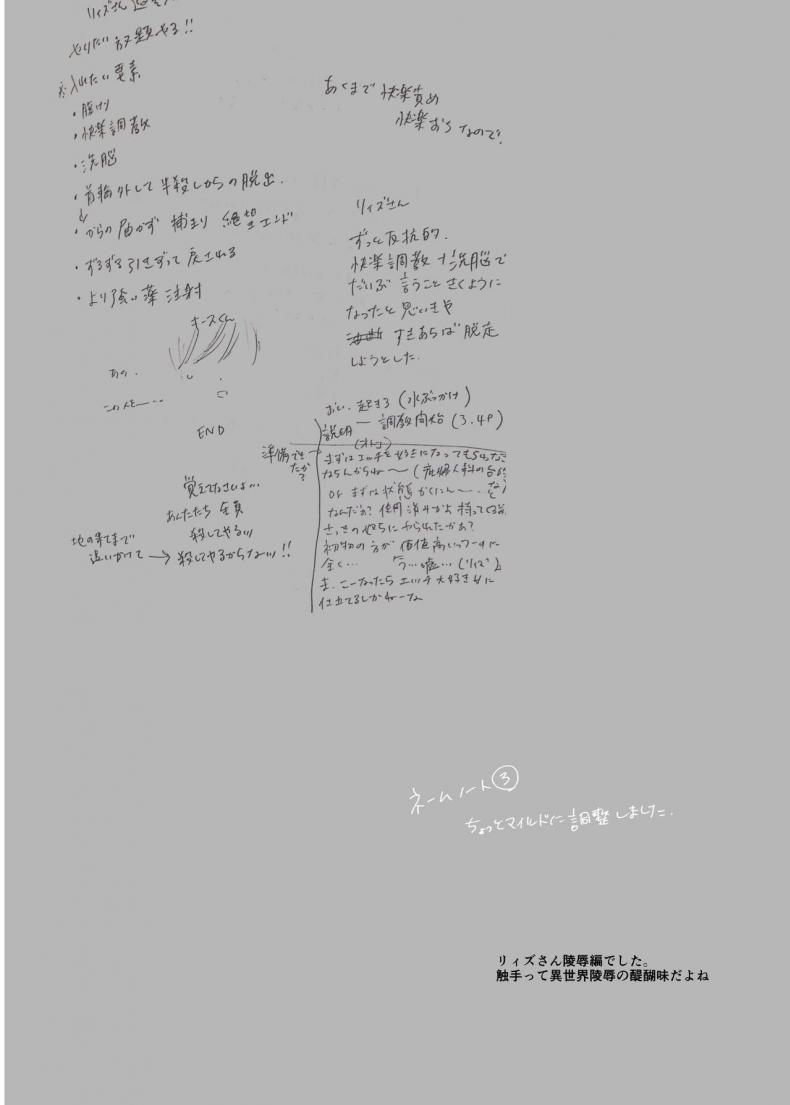 リィズさん
やりたい放題やる!!
入れたい要素
・腹けり
・快楽調教
・洗脳
・首輪外して半殺しからの脱出.
・からの届かず 捕まり 絶望エンド
・ずるずる引きずって戻される
・より強い薬注射
あの.
この人を……
END
覚えてなさいよ…
あんたたち 全員
殺してやるッ
地の果てまで
追いかけて→殺してやるからなッ!!
あくまで 快楽責め
快楽おち なので!
リィズさん
ずっと反抗的.
快楽調教+洗脳で
だいぶ言うこときくように
なったと思いきや
すきあらば脱走
しようとした.
おい. 起きろ (水ぶっかけ)
説明 — 調教開始 (3.4P)
準備でき
たか?
(オトコ)
まずはエッチを好きになってもらわなきゃ
ならんからね〜
or まずは状態かくにん〜.
なんだぁ?使用済みかよ
初物の方が 価値高いッつーのに
全く… う…嘘…(リィズ)
ま.こーなったらエッチ大好き女に
仕立てるしかねーな
ネームノート③
ちょっとマイルドに調整しました.
リィズさん陵辱編でした。
触手って異世界陵辱の醍醐味だよね